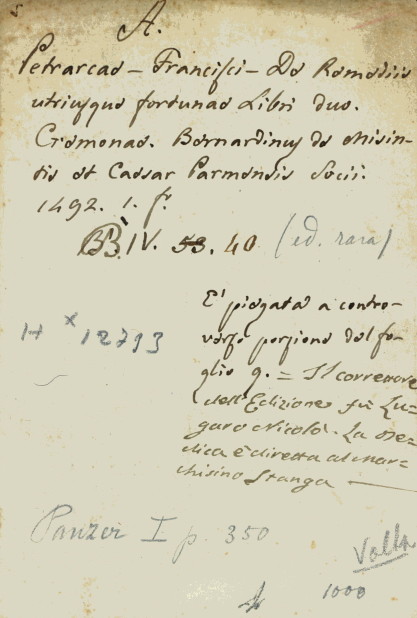 5
A.
Petrarcae – Francisci – De Remediis
utriusque fortunae Libri duo.
Cremonae. Bernardinus de Misin-
tis et Caesar Parmensis Socii.
1492. 1. f.
BB. IV. 53. 40 (ed. rara)
E' piegata a contro-
verso porzione del fo-
glio 9. = Il correttore
dell'Edizione fù Lu-
garo Nicolò. La De-
dica è diretta al Mar-
chisino Stanga —
H x 12793
Panzer I p. 350
Volta
1000